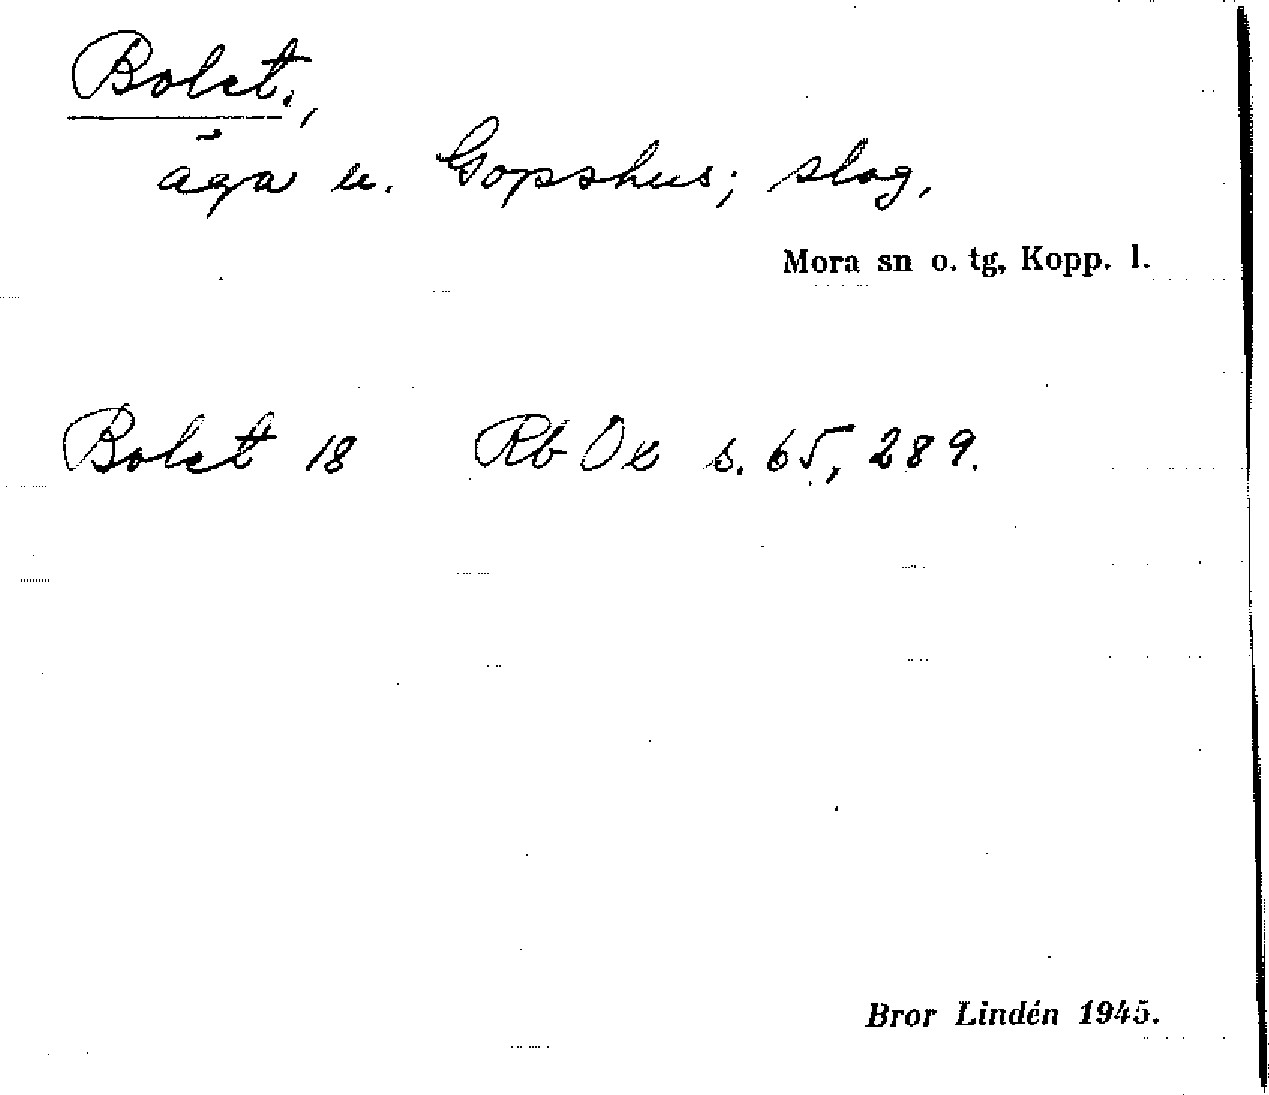 Bolet.,
äga u. Gopshus; slog.
Mora sn o. tg, Kopp. l.
Bolet 18 Rb Öe s. 65, 289.
Bror Lindén 1945.